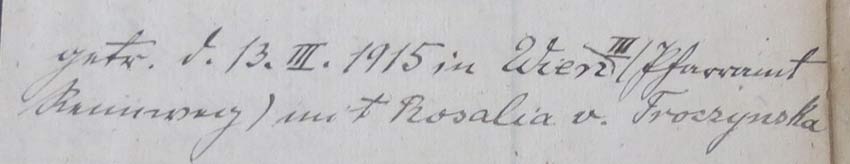 getr. d. 13. III. 1915 in Wien III (Pfarramt
Rennweg) mit Rosalia v. Troczynska